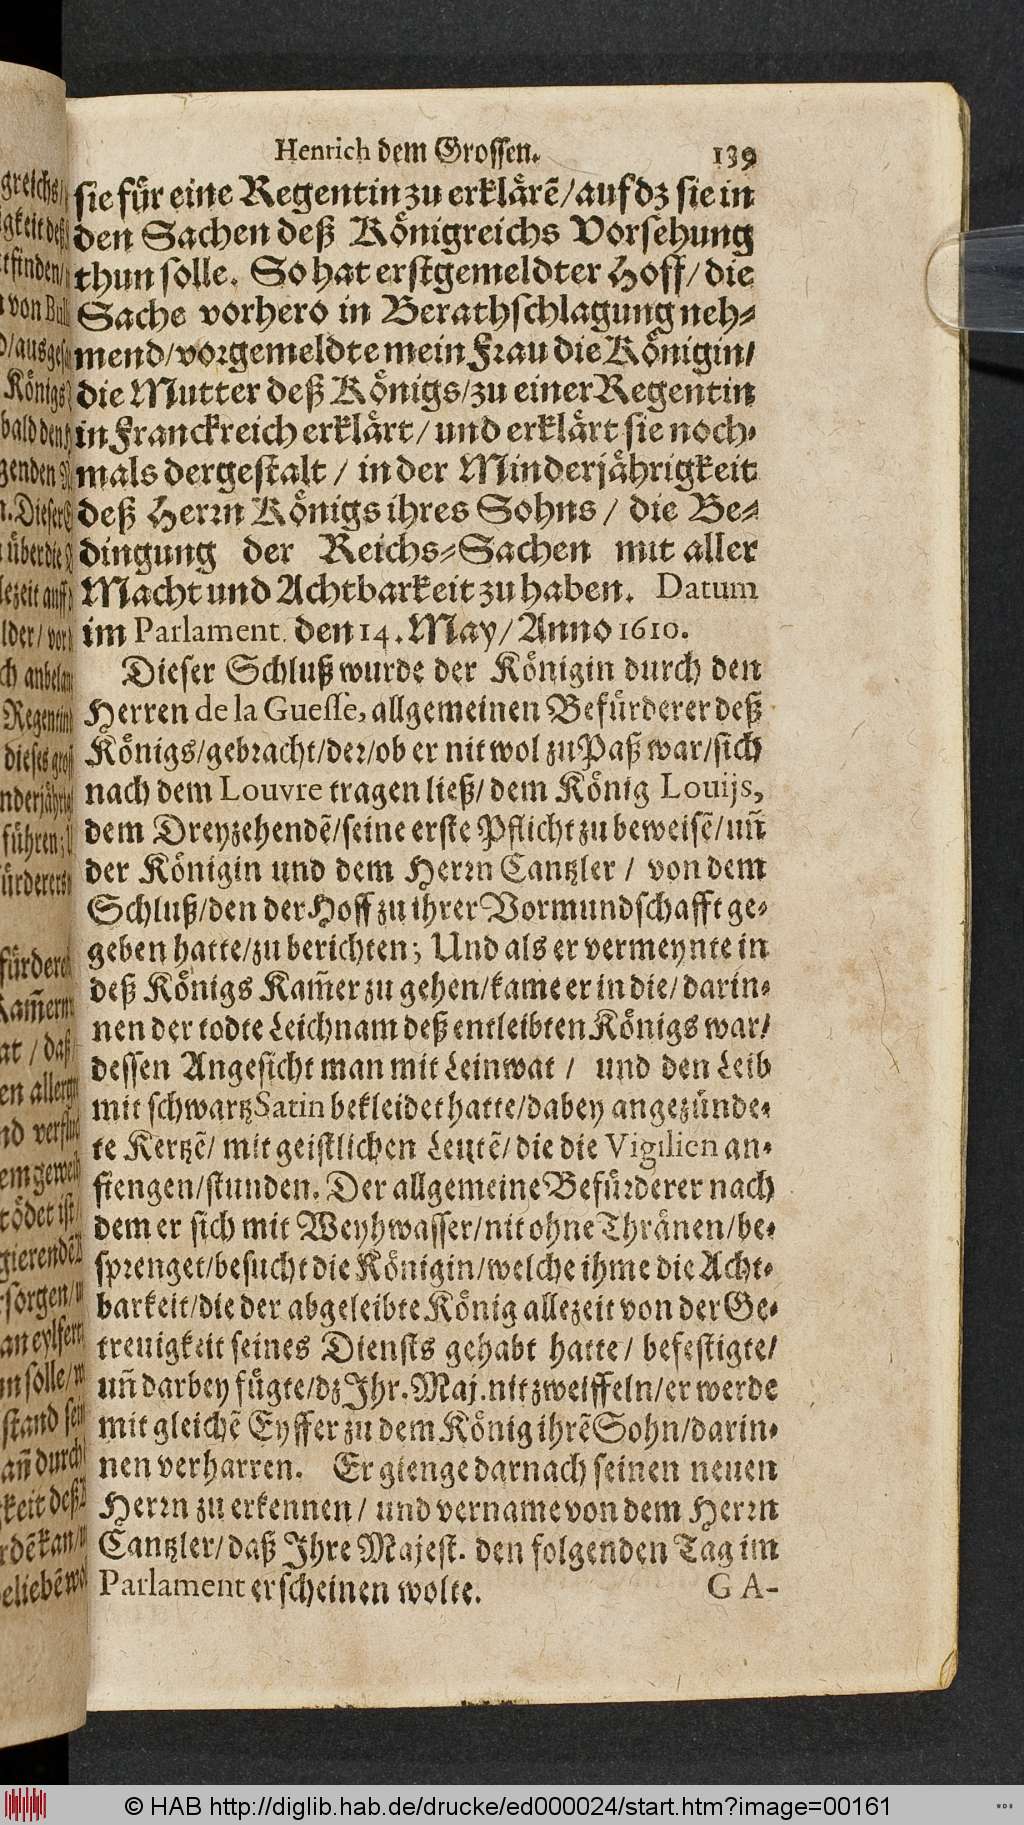 Henrich dem Grossen. 139
sie für eine Regentin zu erklärẽ/auf dz sie in
den Sachen deß Königreichs Vorsehung
thun solle. So hat erstgemeldter Hoff/die
Sache vorhero in Berathschlagung neh⸗
mend/vorgemeldte mein Frau die Königin/
die Mutter deß Königs/zu einer Regentin
in Franckreich erklärt/und erklärt sie noch⸗
mals dergestalt / in der Minderjährigkeit
deß Herrn Königs ihres Sohns / die Be⸗
dingung der Reichs⸗Sachen mit aller
Macht und Achtbarkeit zu haben. Datum
im Parlament. den 14. May/ Anno 1610.
Dieser Schluß wurde der Königin durch den
Herren de la Guesse, allgemeinen Befürderer deß
Königs/gebracht/der/ob er nit wol zu Paß war/sich
nach dem Louvre tragen ließ/dem König Louijs,
dem Dreyzehendẽ/seine erste Pflicht zu beweisẽ/uñ
der Königin und dem Herrn Cantzler / von dem
Schluß/den der Hoff zu ihrer Vormundschafft ge⸗
geben hatte/zu berichten; Und als er vermeynte in
deß Königs Kam̃er zu gehen/kame er in die/darin⸗
nen der todte Leichnam deß entleibten Königs war/
dessen Angesicht man mit Leinwat / und den Leib
mit schwartz Satin bekleidet hatte/dabey angezünde⸗
te Kertzẽ/ mit geistlichen Leutẽ/die die Vigilien an⸗
fiengen/stunden. Der allgemeine Befürderer nach
dem er sich mit Weyhwasser/nit ohne Thränen/be⸗
sprenget/besucht die Königin/welche ihme die Acht⸗
barkeit/die der abgeleibte König allezeit von der Ge⸗
treuigkeit seines Diensts gehabt hatte/ befestigte/
uñ darbey fügte/dz Ihr. Maj. nit zweiffeln/er werde
mit gleichẽ Eyffer zu dem König ihrẽ Sohn/darin⸗
nen verharren. Er gienge darnach seinen neuen
Herrn zu erkennen/ und vername von dem Herrn
Cantzler/daß Ihre Majest. den folgenden Tag im
Parlament erscheinen wolte. GA-
© HAB http://diglib.hab.de/drucke/ed000024/start.htm?image=00161